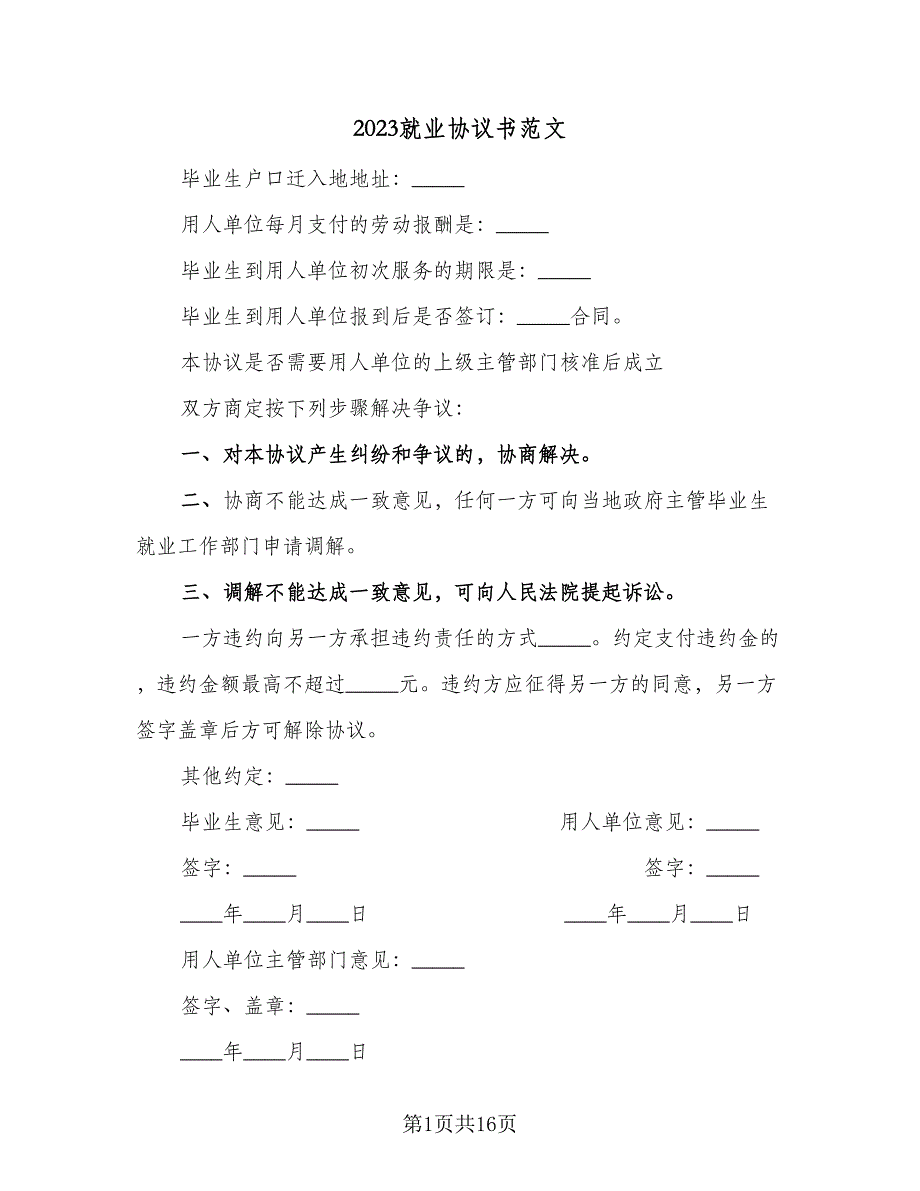 2023就业协议书范文
毕业生户口迁入地地址：_____
用人单位每月支付的劳动报酬是：_____
毕业生到用人单位初次服务的期限是：_____
毕业生到用人单位报到后是否签订：_____合同。
本协议是否需要用人单位的上级主管部门核准后成立
双方商定按下列步骤解决争议：
一、对本协议产生纠纷和争议的，协商解决。
二、协商不能达成一致意见，任何一方可向当地政府主管毕业生
就业工作部门申请调解。
三、调解不能达成一致意见，可向人民法院提起诉讼。
一方违约向另一方承担违约责任的方式_____。约定支付违约金的
，违约金额最高不超过_____元。违约方应征得另一方的同意，另一方
签字盖章后方可解除协议。
其他约定：_____
毕业生意见：_____ 用人单位意见：_____
签字：_____ 签字：_____
____年____月____日 ____年____月____日
用人单位主管部门意见：_____
签字、盖章：_____
____年____月____日
第1页共16页